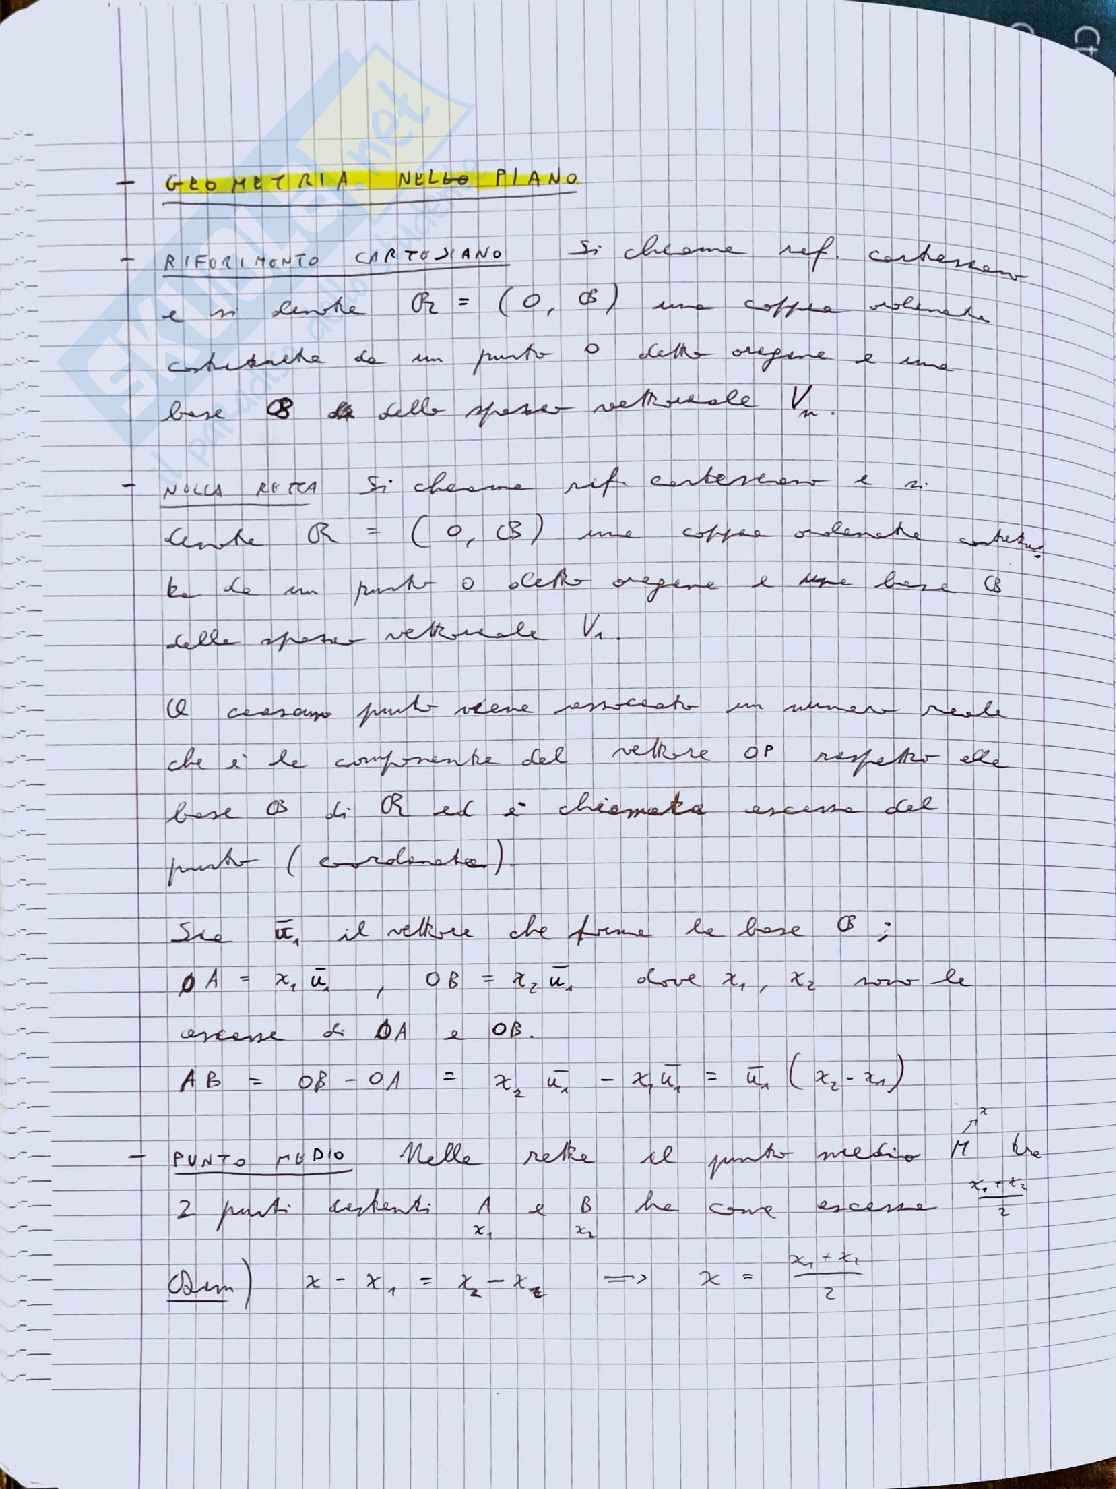 - GEOMETRIA NELLO PIANO
- RIFERIMENTO CARTESIANO Si chiama rif. cartesiano
e si denota R = (O, B) una coppia ordinata
costituita da un punto O detto origine e una
base B dello spazio vettoriale Vn.
- NELLA RETTA Si chiama rif. cartesiano e si
denota R = (O, B) una coppia ordinata costitui
ta da un punto O detto origine e una base B
dello spazio vettoriale V₁.
A ciascun punto viene associato un numero reale
che è la componente del vettore OP rispetto alla
base B di R ed è chiamata ascissa del
punto (coordinata).
Sia ū₁ il vettore che forma la base B ;
OA = x₁ ū₁ , OB = x₂ ū₁ dove x₁, x₂ sono le
ascisse di OA e OB.
AB = OB - OA = x₂ ū₁ - x₁ ū₁ = ū₁ (x₂ - x₁)
- PUNTO MEDIO Nella retta il punto medio M ↗ x tra
2 punti distinti A e B ha come ascissa (x₁ + x₂)/2
x₁ x₂
Dim) x - x₁ = x₂ - x => x = (x₁ + x₂)/2
SKUOLA.net
il paradiso dello studente
Ct